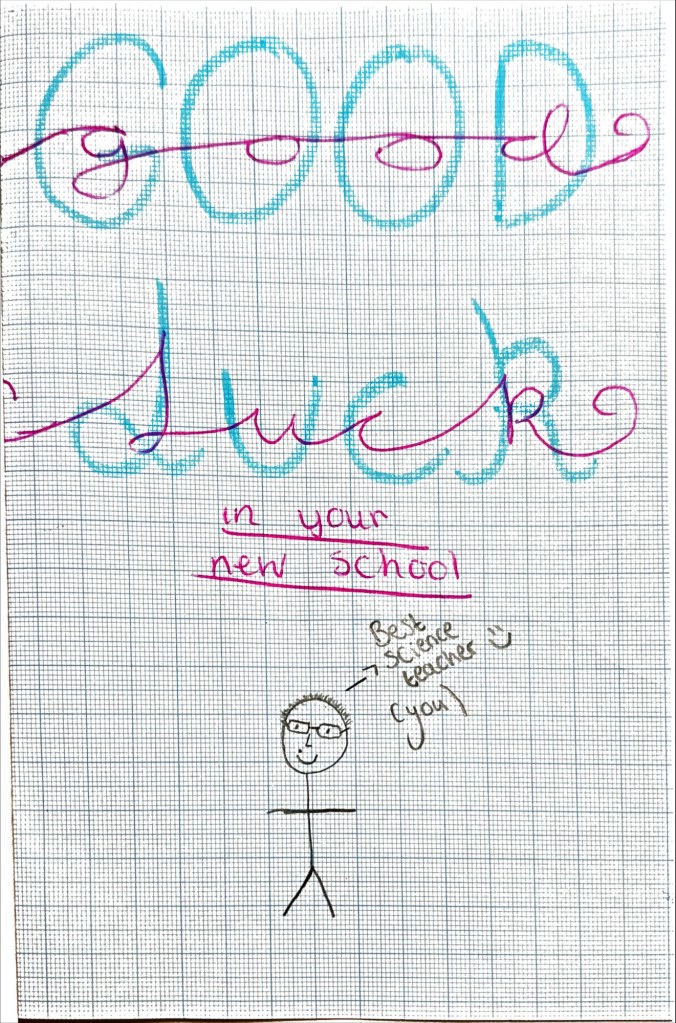 GOOD
good
Luck
Luck
in your
new school
Best
science
teacher :)
(you)